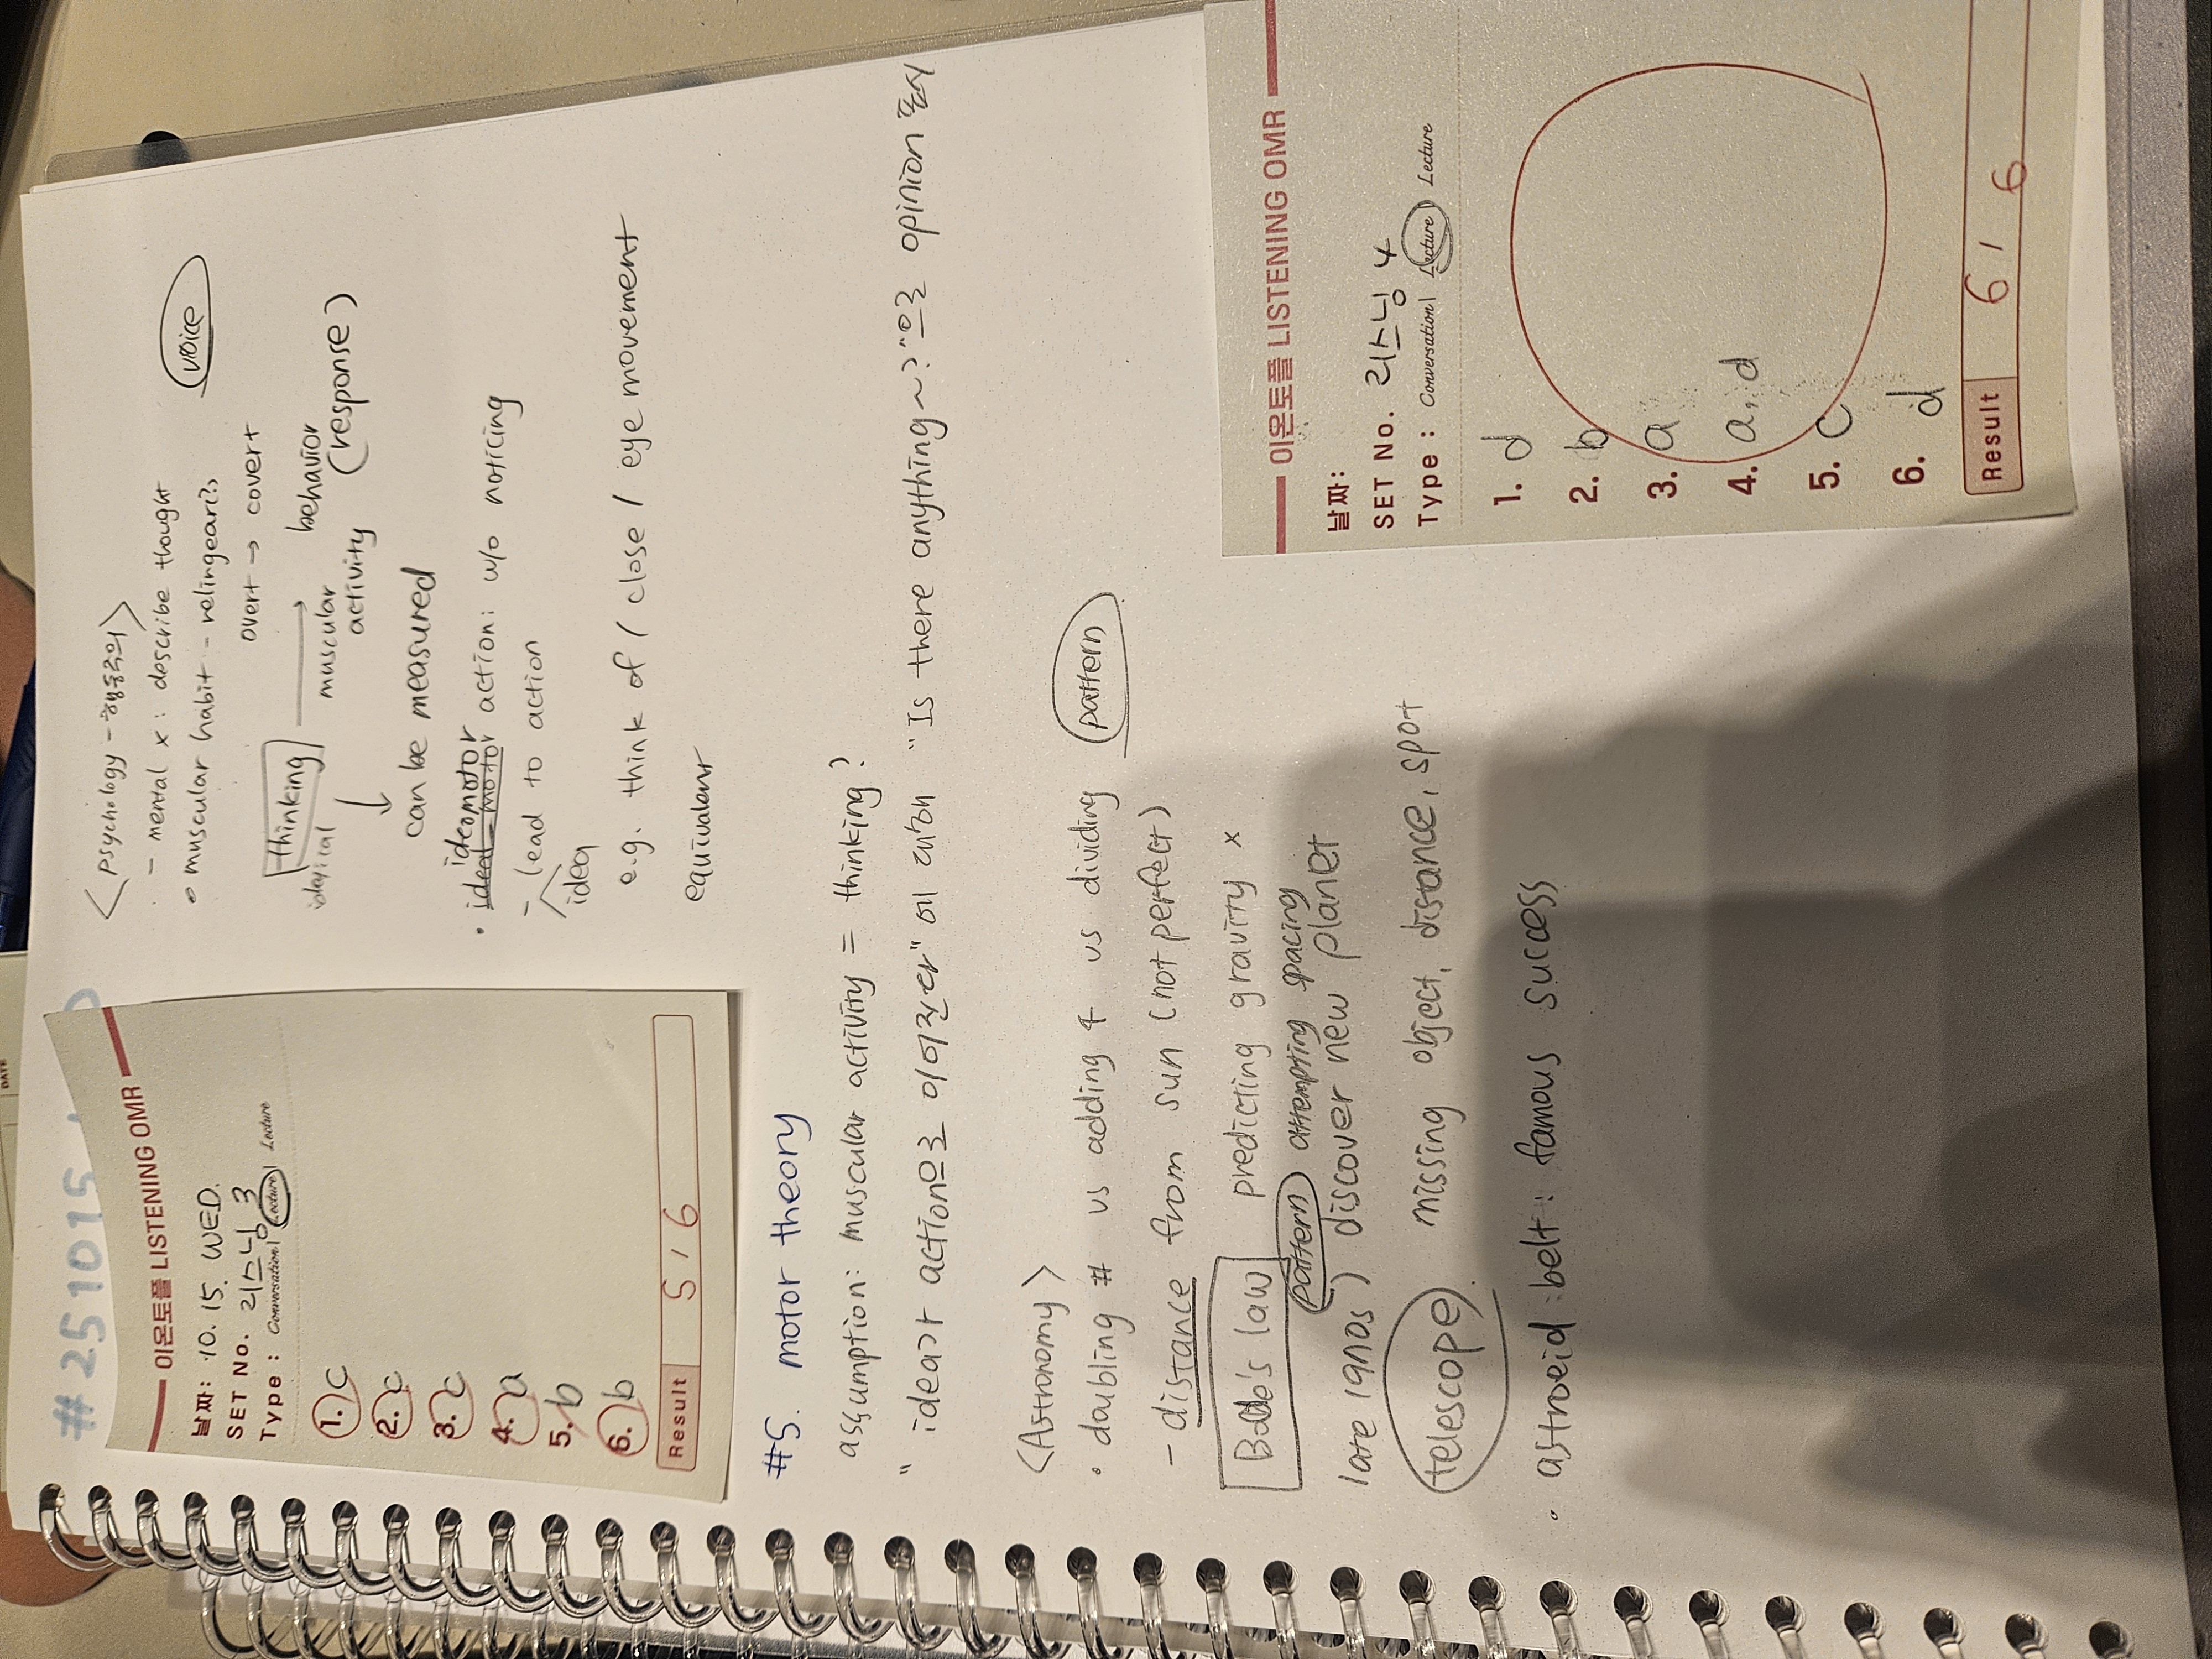 #251015
이온토플 LISTENING OMR
날짜: 10. 15. WED.
SET No. 리스닝 3
Type : Conversation / Lecture / Lecture
1. c
2. c
3. c
4. a
5. b
6. b
Result 5 / 6
<psychology - 행동주의>
- mental x : describe thought
• muscular habit - relingear?
voice
overt → covert
thinking → behavior
muscular activity (response)
can be measured
• ideal motor action: w/o noticing
ideomotor
- lead to action
idea
e.g. think of ( close / eye movement
equivalent
#5. motor theory
assumption: muscular activity = thinking?
"idea가 action으로 이어진다"에 대한 "Is there anything~?"으로 opinion 표시
<Astronomy>
• doubling # vs adding 4 vs dividing
pattern
- distance from sun (not perfect)
Bode's law predicting gravity x
pattern attempting spacing
late 19nos ) discover new planet
telescope missing object, distance, spot
• astroeid belt: famous success
이온토플 LISTENING OMR
날짜:
SET No. 리스닝 4
Type : Conversation / Lecture / Lecture
1. d
2. b
3. a
4. a, d
5. c
6. d
Result 6 / 6